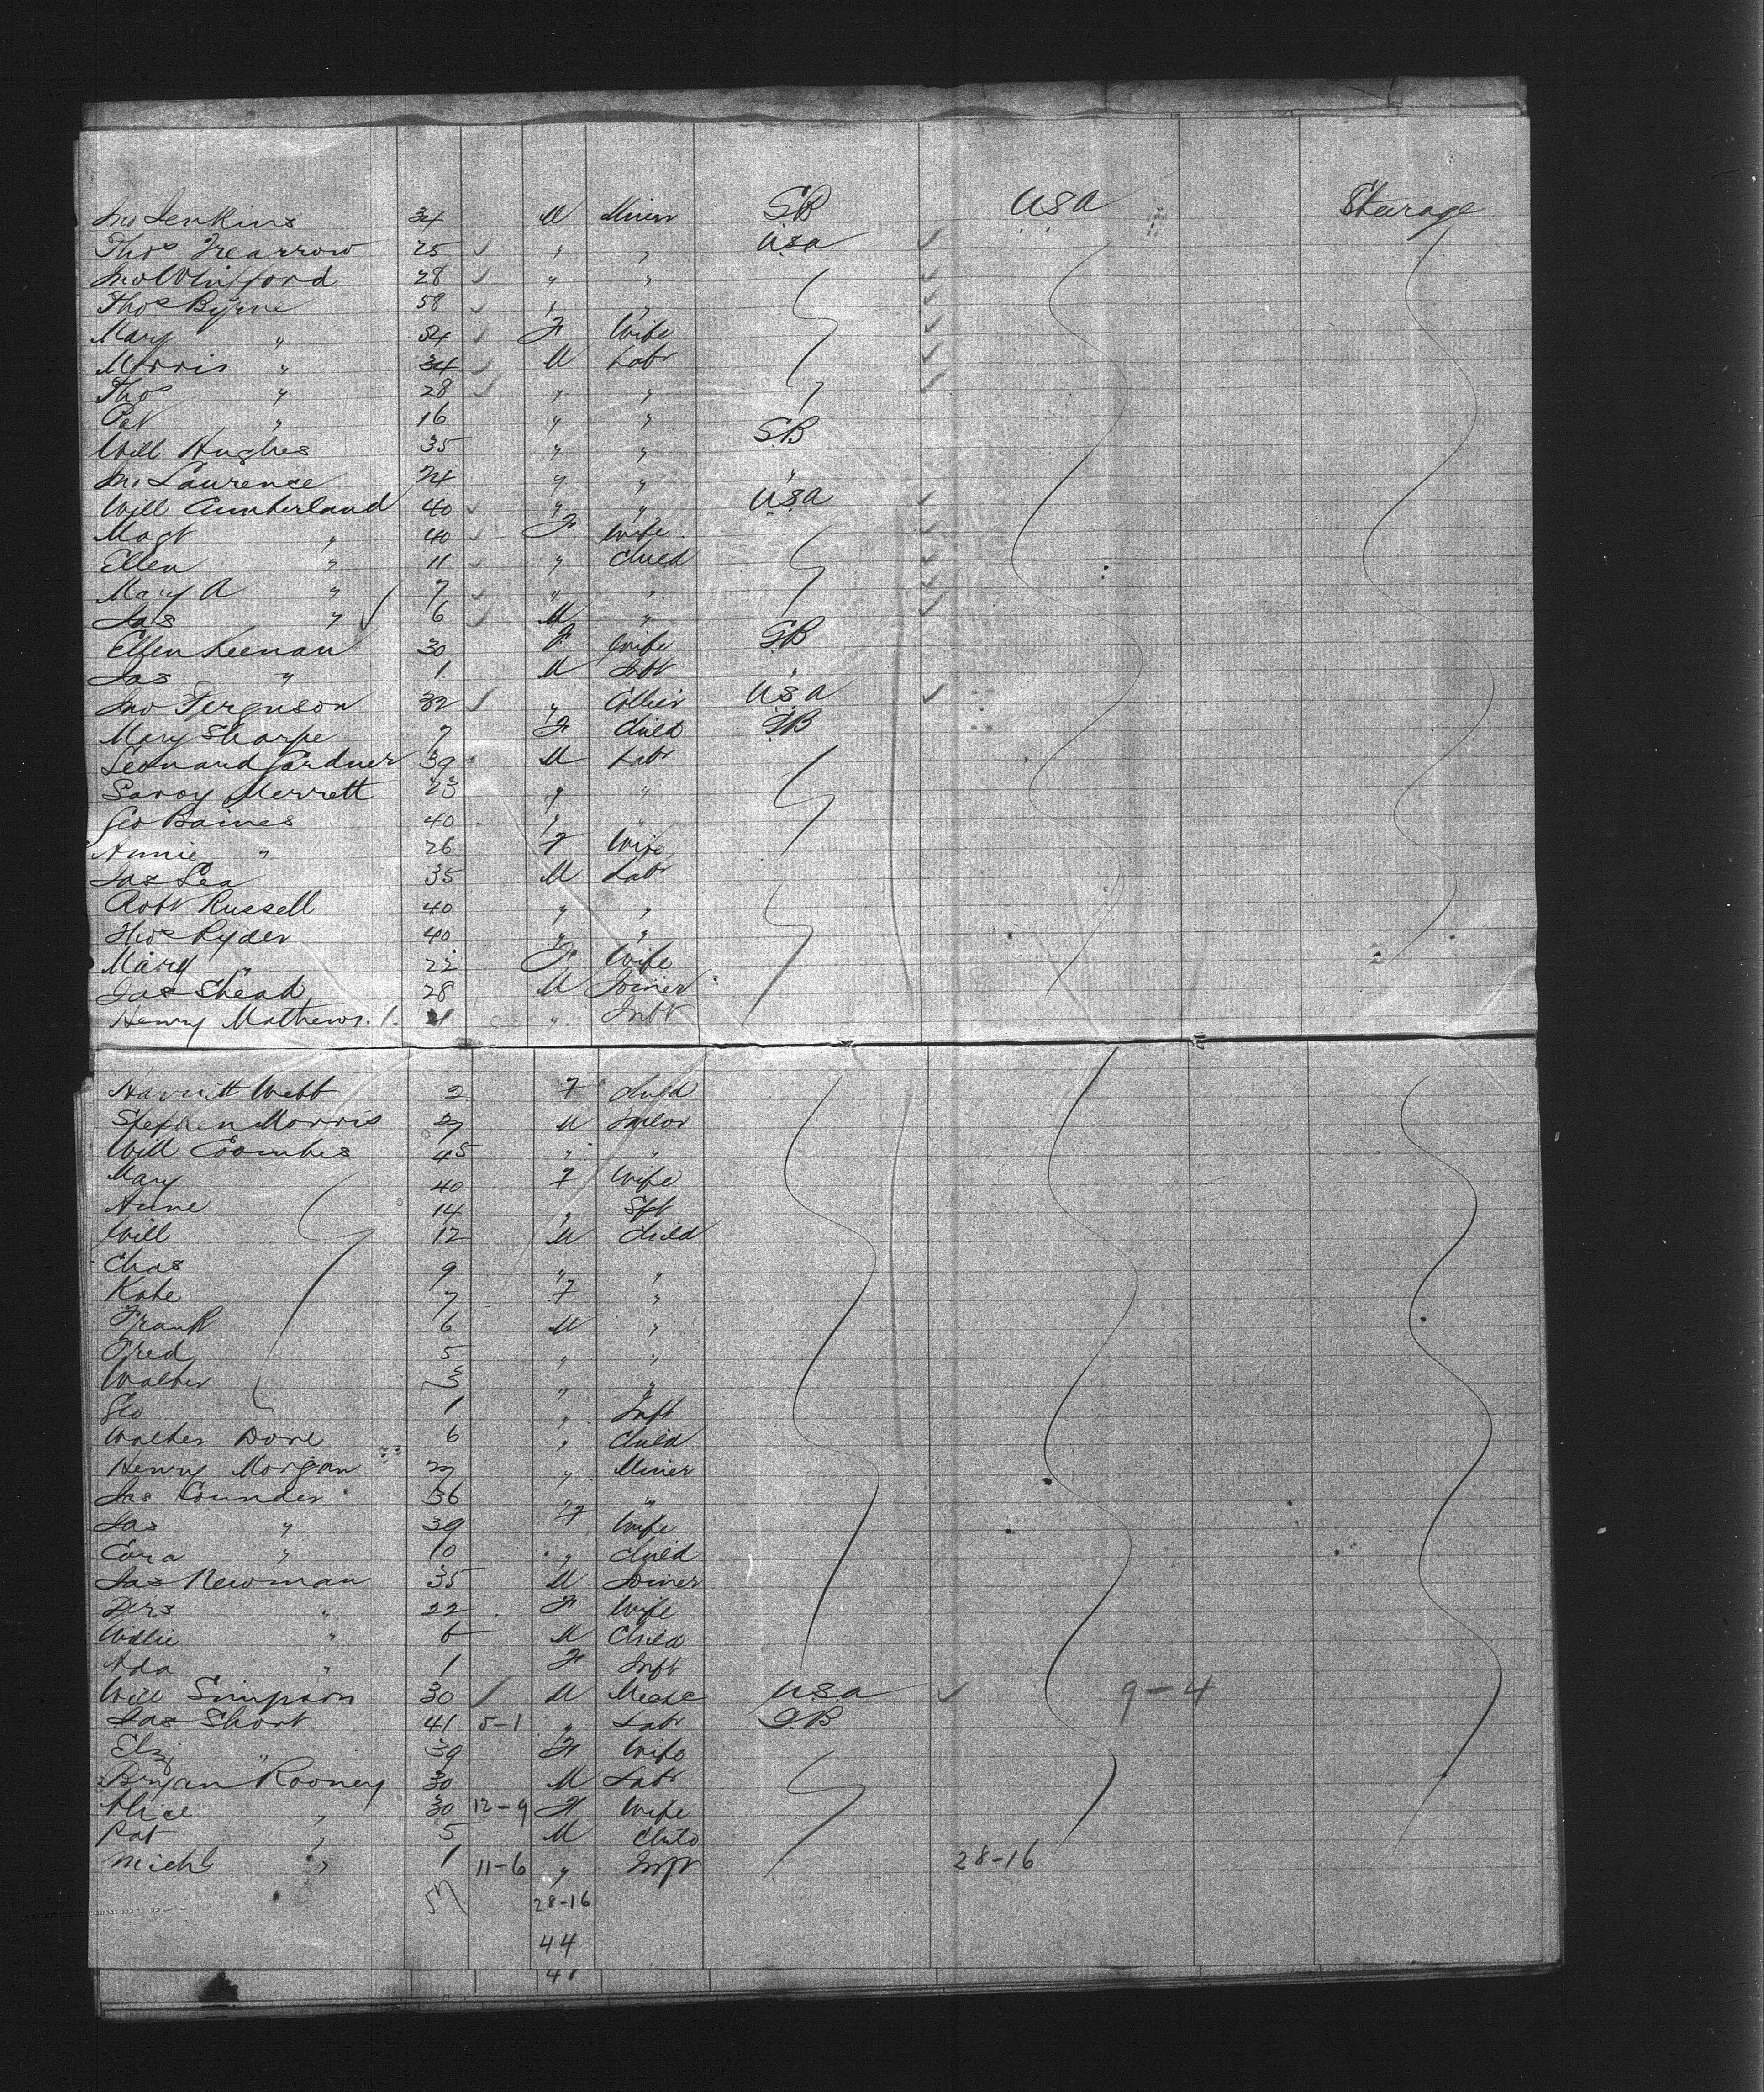 Jno Jenkins 34 M Miner GB USA Steerage
Thos Trearrow 25 ✓ " " USA ✓
Jno Winfford 28 ✓ " " ✓
Thos Byrne 58 ✓ " " ✓
Mary " 54 ✓ F Wife ✓
Morris " 34 ✓ M Labr ✓
Thos " 28 ✓ " " " ✓
Pat " 16 " " GB
Will Hughes 35 " "
Jno Laurence 24 " " "
Will Cumberland 40 ✓ " " USA ✓
Magt " 40 ✓ F Wife ✓
Ellen " 11 ✓ " Child ✓
Mary A " 7 ✓ " " ✓
Jas " ✓ 6 ✓ M " ✓
Ellen Keenan 30 F Wife GB
Jas " 1 M Inft "
Jno Ferguson 32 ✓ " Collier USA ✓
Mary Sharpe 7 F Child GB
Leonard Gardner 39 M Labr
Savoy Merrett 23 " "
Geo Baines 40 " "
Annie " 26 F Wife
Jas Lea 35 M Labr
Robt Russell 40 " "
Thos Ryder 40 " "
Mary " 22 F Wife
Jas Shead 28 M Joiner
Henry Mathews 1. " Inft
Harriett Webb 2 F Child
Stephen Morris 27 M
Will Coombes 45 " "
Mary 40 F Wife
Anne 14 " Spt
Will 12 M Child
Chas 9 " "
Kate 7 F "
Frank 6 M "
Fred 5 " "
Walter 3 " "
Geo 1 " Inft
Walter Dore 6 " Child
Henry Morgan 27 " Miner
Jas Counder 36 " "
Jas " 39 F Wife
Cora " 10 " Child
Jas Newman 35 M Joiner
Mrs " 22 F Wife
Willie " 6 M Child
Ada " 1 F Inft
Will Simpson 30 ✓ M Mechc USA ✓ 9-4
Jas Short 41 5-1 " Labr GB
Eliz " 39 F Wife
Bryan Rooney 30 M Labr
Alice " 30 12-9 F Wife
Pat " 5 M Child
Michl " 1 11-6 " Inft 28-16
57 28-16
44
41